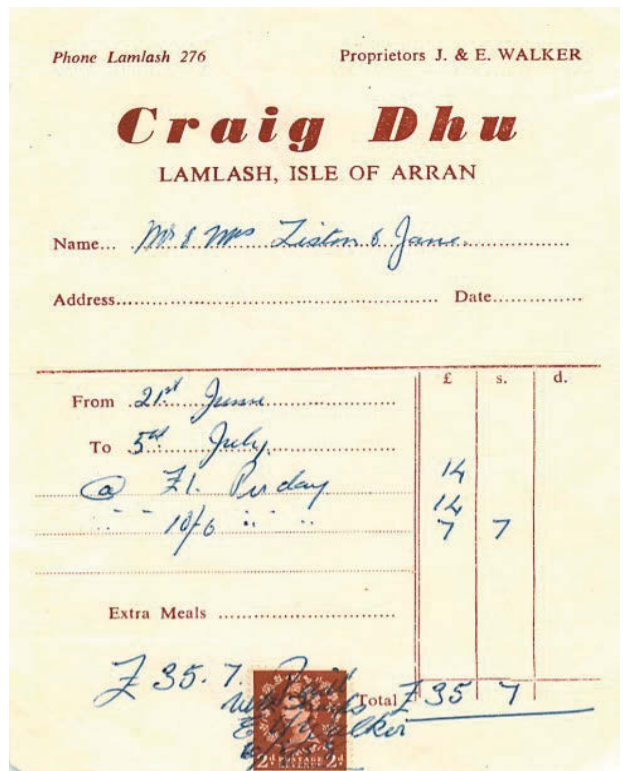 Phone Lamlash 276 Proprietors J. & E. WALKER
Craig Dhu
LAMLASH, ISLE OF ARRAN
Name... Mr & Mrs Liston & Jane.
Address... Date...
£ s. d.
From 21st June
To 5th July.
@ £1. Per day 14
14
" " 10/6 " " 7 7
Extra Meals ...
£35.7. Paid
Total £35 7
With Thanks
E Walker
POSTAGE
REVENUE